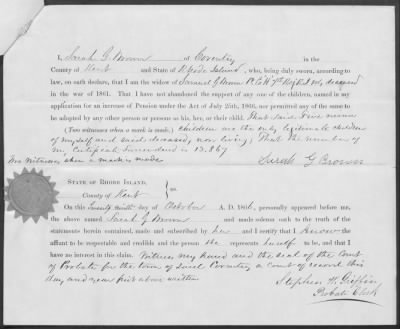 I, Sarah G Brown of Coventry in the
County of Kent and State of Rhode Island, who, being duly sworn, according to
law, on oath declare, that I am the widow of Samuel G Brown Co H 7th Regt R.I. Vols deceased
in the war of 1861. That I have not abandoned the support of any one of the children, named in my
application for an increase of Pension under the Act of July 25th, 1866, nor permitted any of the same to
be adopted by any other person or persons as his, her, or their child. That said five named
(Two witnesses when a mark is made.) children are the only legitimate children
of myself and said deceased, now living; That the number of
my Certificate surrendered is 13.867
Two Witnesses when a mark is made Sarah G Brown
STATE OF RHODE ISLAND,
County of Kent ss.
On this Twenty day of October A. D. 1866, personally appeared before me,
the above named Sarah G Brown and made solemn oath to the truth of the
statements herein contained, made and subscribed by her and I certify that I know
affiant to be respectable and credible and the person she represents herself to be, and that I
have no interest in this claim. Witness my hand and the seal of the Court
of Probate for the town of said Coventry a court of record this
day and year first above written
Stephen W. Griffin
Probate Clerk